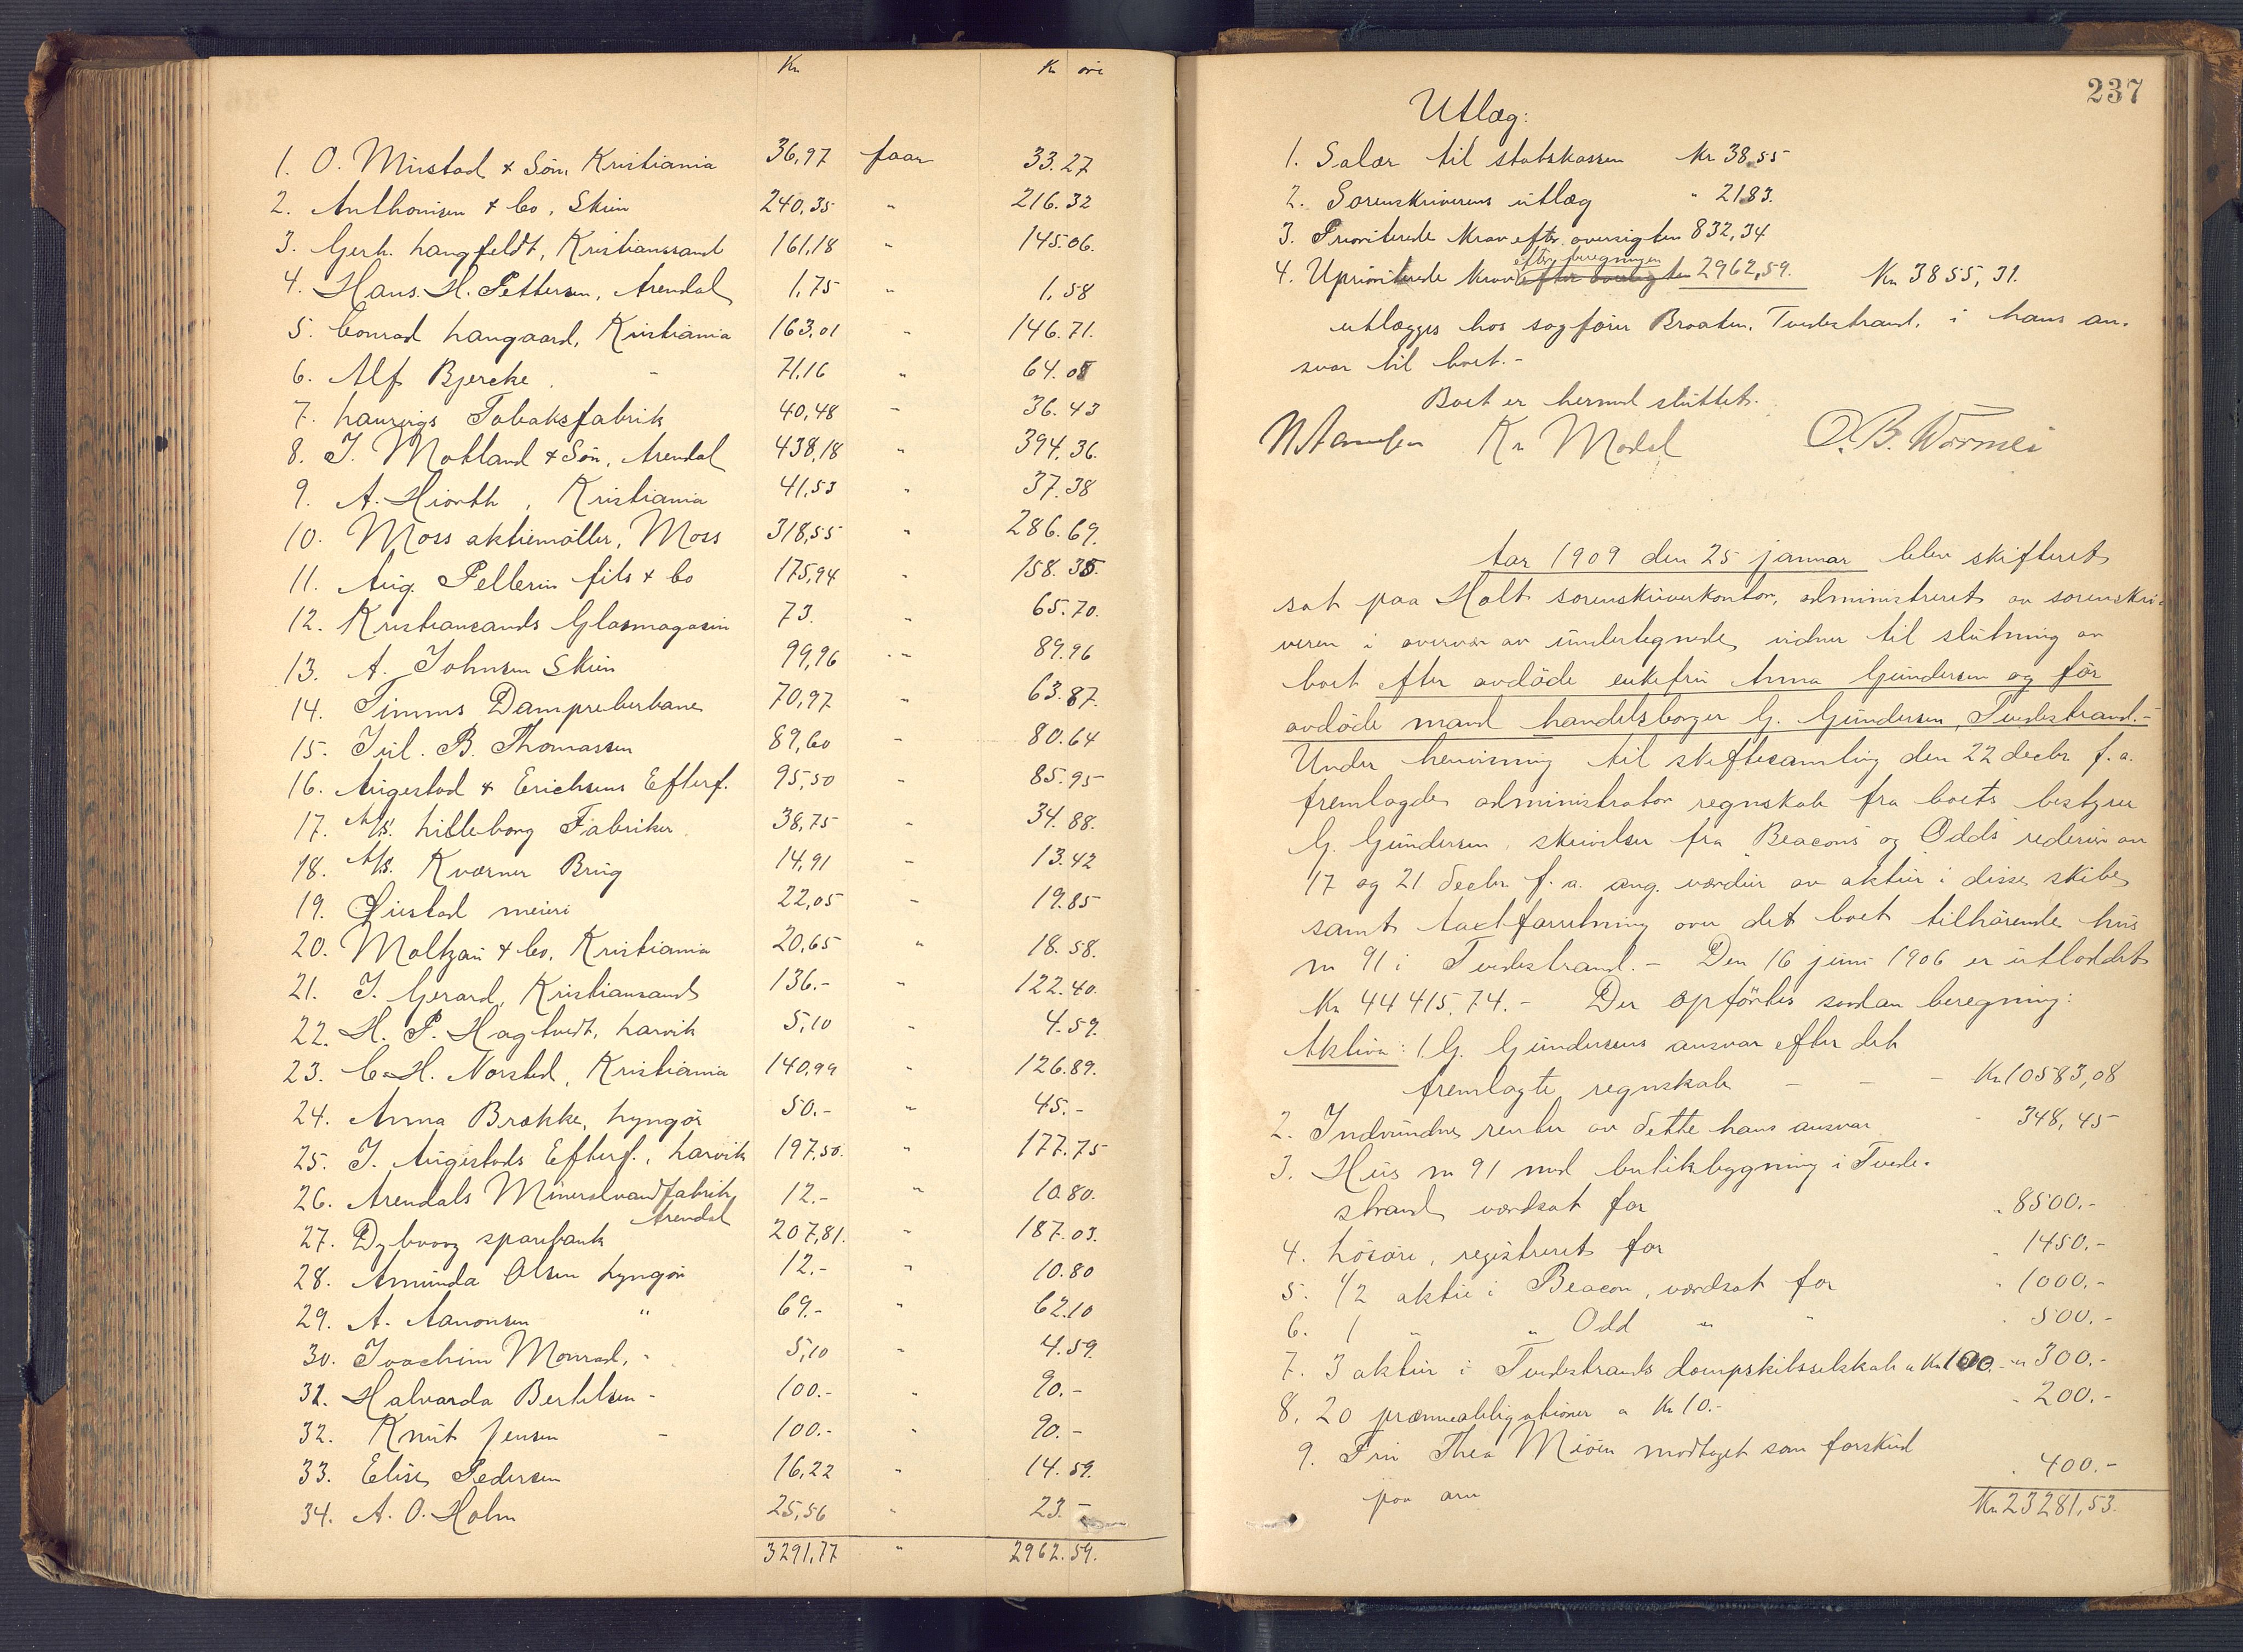 Kr Kr øre
1. O. Mustad & Søn, Kristiania 36,97 faar 33.27
2. Anthonisen & Co, Skien 240,35 " 216.32
3. Gerh. Langfeldt, Kristianssand 161,18 " 145.06.
4. Hans H. Pettersen, Arendal 1,75 " 1,58
5. Conrad Langaard, Kristiania 163,01 " 146.71.
6. Alf Bjercke. - 71,16 " 64.05
7. Laurvigs Tobaksfabrik 40,48 " 36.43
8. J. Motland & Søn, Arendal 438,18 " 394.36.
9. A. Hiorth, Kristiania 41,53 " 37.38
10. Moss aktiemöller, Moss 318,55 " 286.69.
11. Aug. Pellerin fils & Co 175,94 " 158.35.
12. Kristiansands Glasmagasin 73. " 65.70.
13. A. Johnsen Skien 99,96 " 89.96
14. Timms Dampreberbane 70,97 " 63.87.
15. Jul. B. Thomassen 89,60 " 80.64
16. Augestad & Erichsens Efterf. 95,50 " 85.95
17. A/S. Lilleborg Fabriker 38,75 " 34.88.
18. A/S. Kværner Brug 14,91 " 13.42
19. meieri 22,05 " 19.85
20. Moltzau & Co, Kristiania 20,65 " 18.58.
21. J. Gerard, Kristiansand 136.- " 122.40.
22. H. P. Hagtvedt, Larvik 5,10 " 4.59.
23. C. H. Norsted, Kristiania 140,99 " 126.89.
24. Anna Brække, Lyngør 50.- " 45.-
25. J. Augestads Efterf., Larvik 197,50. " 177.75
26. Arendals Mineralvandfabrik, Arendal 12.- " 10.80.
27. Dybvaag sparebank 207,81. " 187.03.
28. Amunda Olsen Lyngør 12.- " 10.80
29. A. Aanonsen " 69.- " 62.10
30. Joachim Monrad, " 5,10 " 4.59.
31. Halvarda Bertelsen - 100.- " 90.-
32. Knut Jensen - 100.- " 90.-
33. Elise Pedersen 16,22 " 14.59.
34. A. O. Holm 25,56 " 23.-
3291,77 " 2962.59.
237
Utlæg:
1. Salær til statskassen Kr 38,55
2. Sorenskriverens utlæg " 21,83.
3. Prioriterede krav efter oversigten 832,34
efter beregningen
4. Uprioriterede krav 2962,59. Kr 3855,31.
utlægges hos sagfører Braaten, Tvedestrand, i hans an-
svar til boet.-
Boet er hermed sluttet.
Kr Modal
Aar 1909 den 25 januar blev skifteret
sat paa Holt sorenskriverkontor, administreret av sorenskri-
veren i overvær av undertegnede vidner til slutning av
boet efter avdöde enkefru Anna Gundersen og för
avdöde mand handelsborger G. Gundersen, Tvedestrand.-
Under henvisning til skiftesamling den 22 decbr f. a.
fremlagde administrator regnskab fra boets bestyrer
G. Gundersen, skrivelser fra "Beacons og Odds" rederier av
17 og 21 decbr f. a. ang. værdien av aktier i disse skibe
samt taxtforretning over det boet tilhörende hus
no 91 i Tvedestrand.- Den 16 juni 1906 er utloddet
Kr 44415.74.- Der opförtes saadan beregning:
Aktiva: 1. G. Gundersens ansvar efter det
fremlagte regnskab - - - Kr. 10583,08
2. Indvundne renter av dette hans ansvar " 348,45
3. Hus no 91 med butikbygning i Tvede-
strand, værdsat for " 8500.-
4. Lösöre, registreret for " 1450.-
5. 1/2 aktie i Beacon, værdsat for " 1000.-
6. 1 " " Odd " " " 500.-
7. 3 aktier i Tvedestrands dampskibsselskab a Kr 100.- " 300.-
8. 20 præmieobligationer a Kr 10.- " 200.-
9. Fru Thea modtaget som forskud
paa arv " 400.-
Kr. 23281,53.